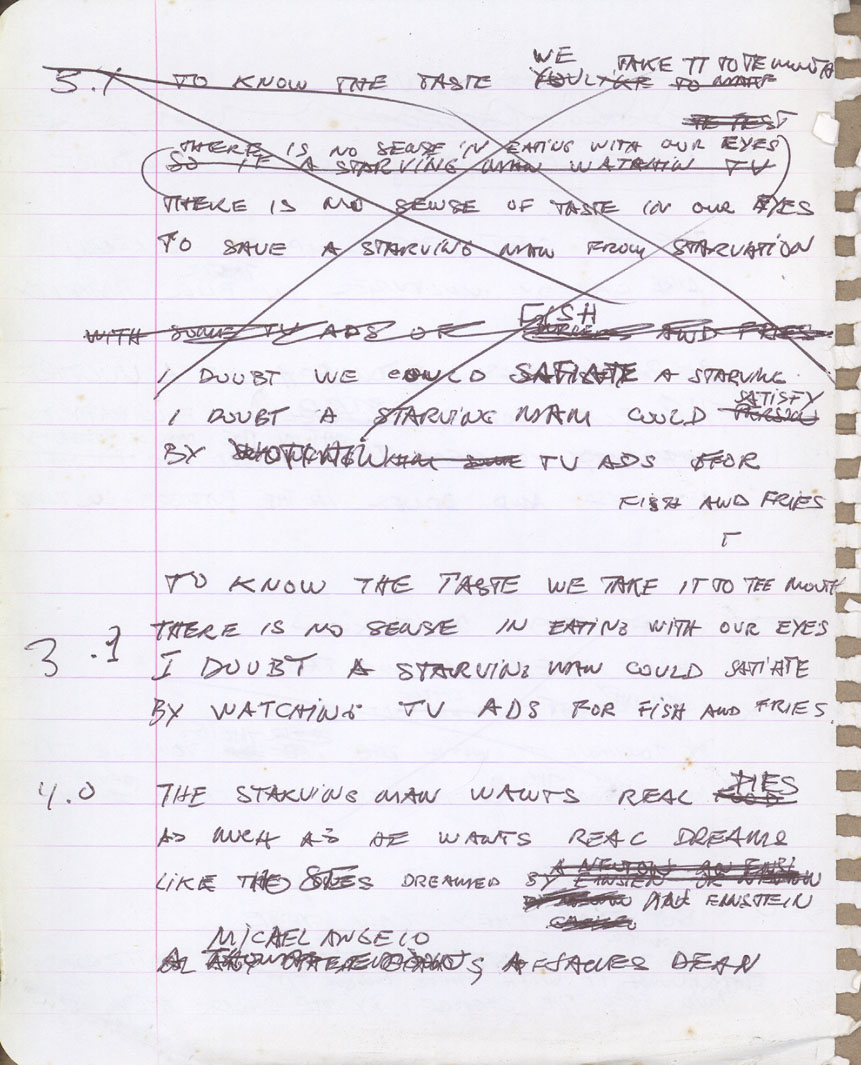 3.1 TO KNOW THE TASTE WE TAKE IT TO TE MOUTH
THERE IS NO SENSE IN EATING WITH OUR EYES
SO IF A STARVING MAN WATCHIN TV
THERE IS NO SENSE OF TASTE IN OUR EYES
TO SAVE A STARVING MAN FROM STARVATION
FISH
WITH SOME TV ADS OF AND FRIES
I DOUBT WE COULD SATIATE A STARVING
I DOUBT A STARVING MAN COULD SATISFY
BY TV ADS FOR
FISH AND FRIES
TO KNOW THE TASTE WE TAKE IT TO TEE MOUTH
THERE IS NO SENSE IN EATING WITH OUR EYES
3.1 I DOUBT A STARVING MAN COULD SATIATE
BY WATCHING TV ADS FOR FISH AND FRIES.
4.0 THE STARVING MAN WANTS REAL PIES
AS MUCH AS HE WANTS REAL DREAMS
LIKE THE ONES DREAMED BY EINSTEIN
MICAEL ANGELO
JAMES DEAN